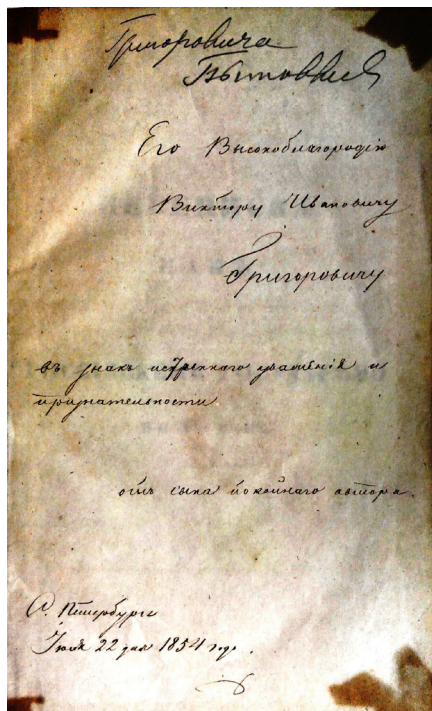 Григоровича
Его Высокоблагородію
Виктору Ивановичу
Григоровичу
въ знакъ искренняго уваженія и
признательности
отъ сына покойнаго автора.
С. Петербургъ
22 дня 1854 года.